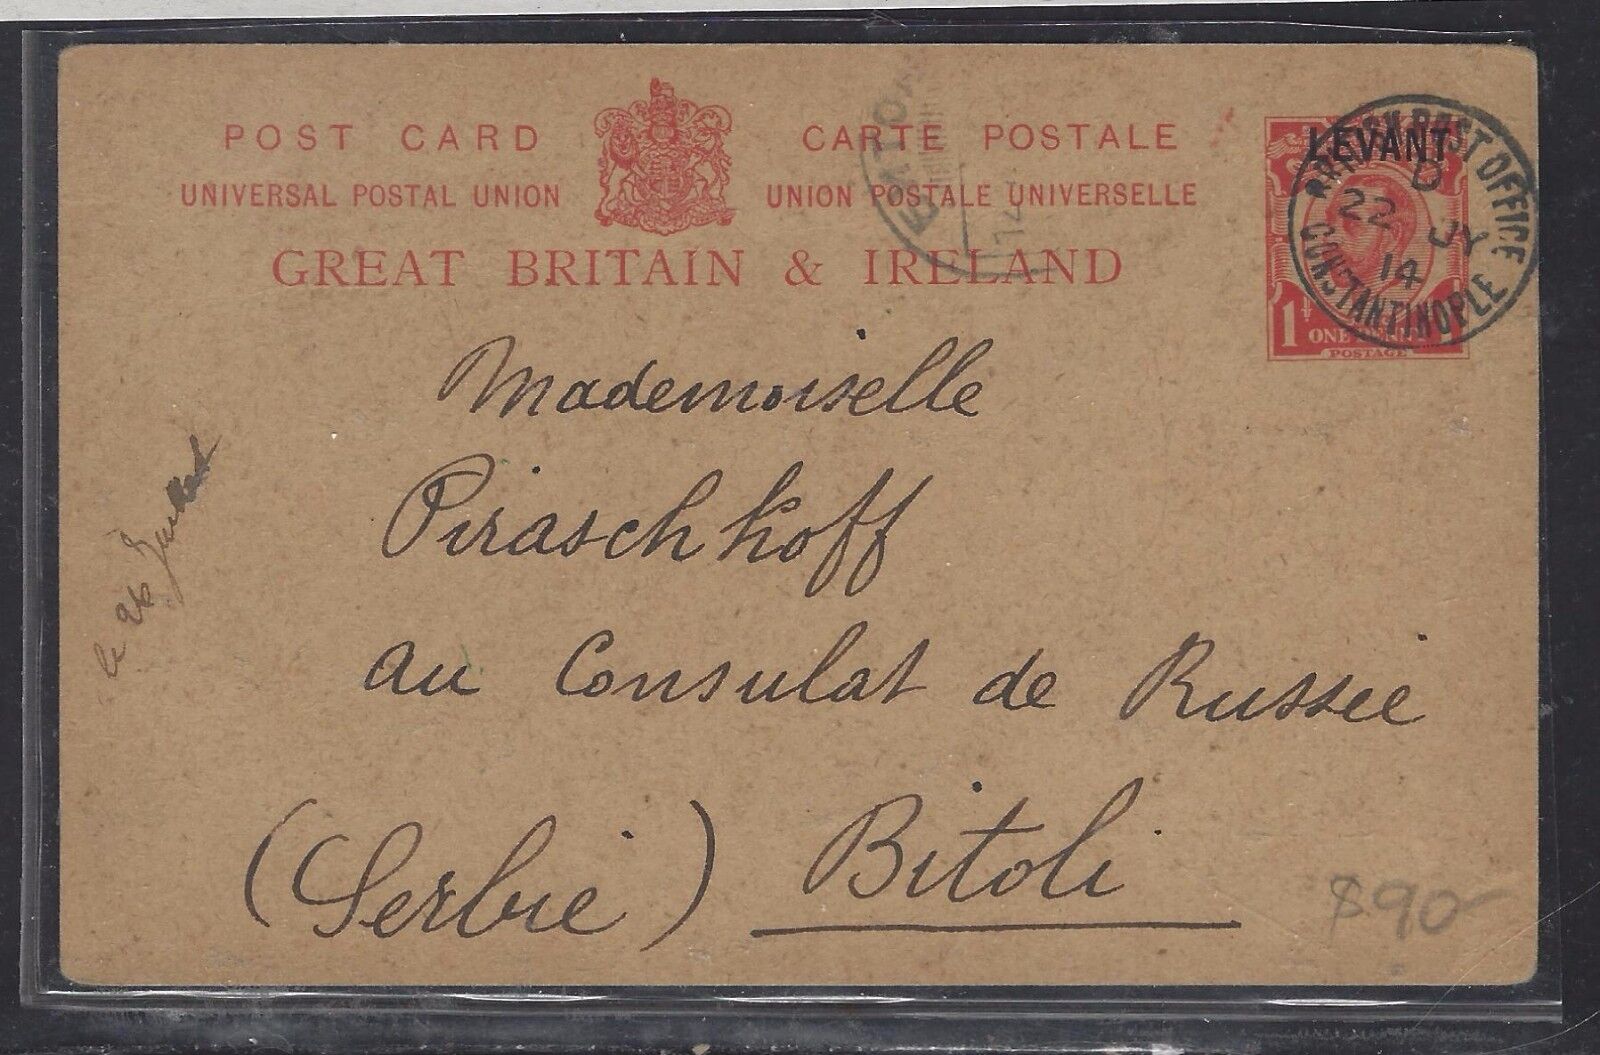 POST CARD
CARTE POSTALE
UNIVERSAL POSTAL UNION
UNION POSTALE UNIVERSELLE
GREAT BRITAIN & IRELAND
LEVANT
BRITISH POST OFFICE
D
22 JY
14
CONSTANTINOPLE
1 ONE PENNY 1
POSTAGE
14
Mademoiselle
Piraschkoff
au Consulat de Russie
(Serbie) Bitoli
le 26 Juillet
$90-